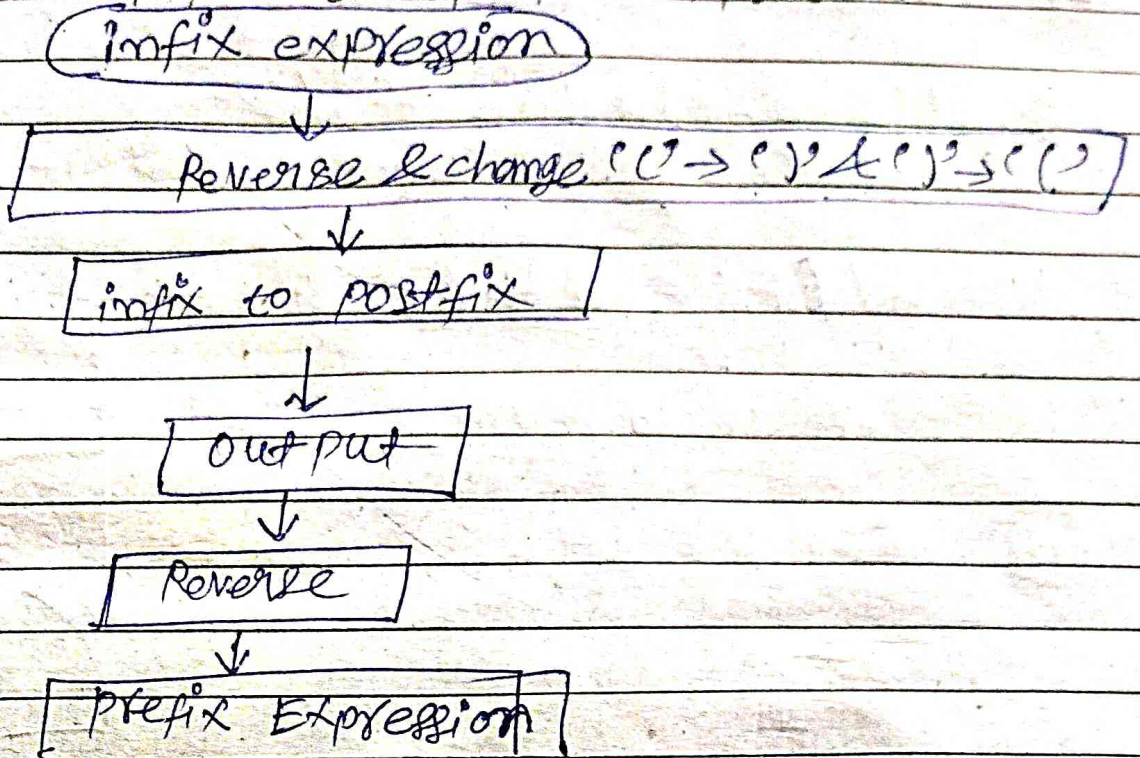 infix expression
Reverse & change '(' → ')' & ')' → '('
infix to postfix
output
Reverse
prefix Expression